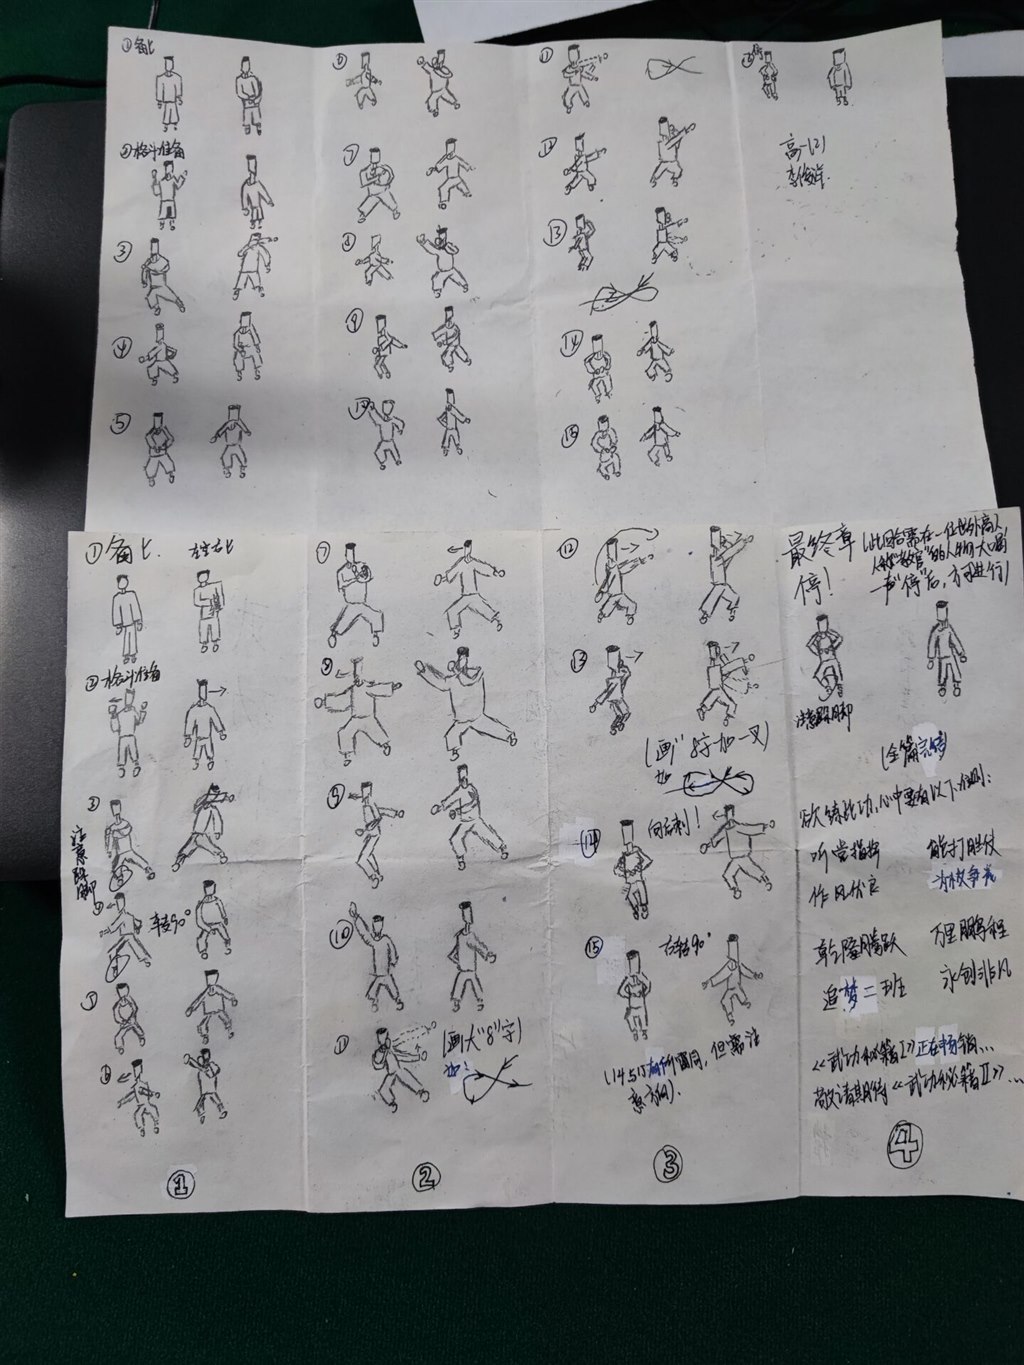 ①备匕
②格斗准备
③
④
⑤
⑥
⑦
⑧
⑨
⑩
⑪
⑫
⑬
⑭
⑮
高一(2)
①备匕
②格斗准备
③
注意跺脚
④
左转90°
⑤
⑥
①
⑦
⑧
⑨
⑩
⑪
(画大"8"字)
如:
②
⑫
⑬
(画"8"字加一叉)
如
⑭
向后刺!
⑮
右转90°
(14与15有所雷同,但需注
意方向).
③
最终章
停!
(此回合需在一位世外高人,
人称"教官"的人物大喝一
声"停"后,方可进行)
注意跺脚
(全篇完结)
欲练此功,心中要有以下准则:
听党指挥 能打胜仗
作风优良 为校争光
乾隆腾跃 万里鹏程
追梦二班 永创非凡
《武功秘籍I》正在畅销...
敬请期待《武功秘籍II》...
④